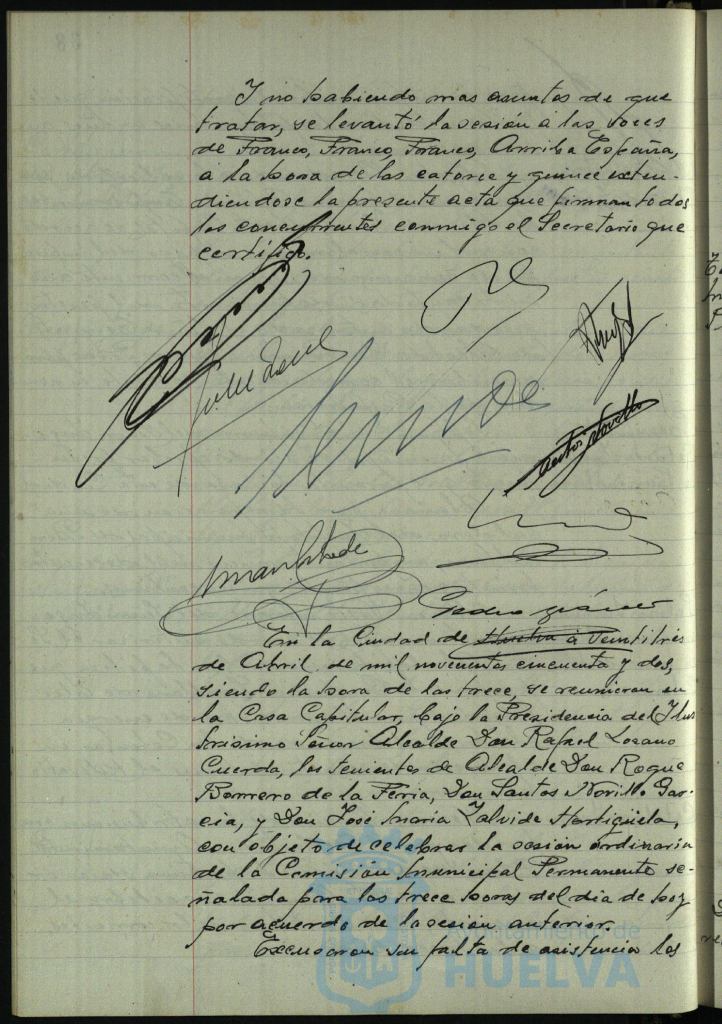 Y no habiendo mas asuntos de que
tratar, se levantó la sesión a las voces
de Franco, Franco, Franco, Arriba España,
a la hora de las catorce y quince exten-
diendose la presente acta que firman todos
los concurrentes conmigo el Secretario que
certifico.
Santos Novillo
En la Ciudad de Huelva a Veintitrés
de Abril de mil novecientos cincuenta y dos,
siendo la hora de las trece, se reunieron en
la Casa Capitular, bajo la Presidencia del Ilus
trisimo Señor Alcalde Don Rafael Lozano
Cuerda, los tenientes de Alcalde Don Roque
Borrero de la Feria, Don Santos Novillo Gar-
cia, y Don José Maria Zalvide Hortigüela,
con objeto de celebrar la sesión ordinaria
de la Comisión Municipal Permanente se-
ñalada para las trece horas del día de hoy
por acuerdo de la sesión anterior.
Excusaron su falta de asistencia los
HUELVA